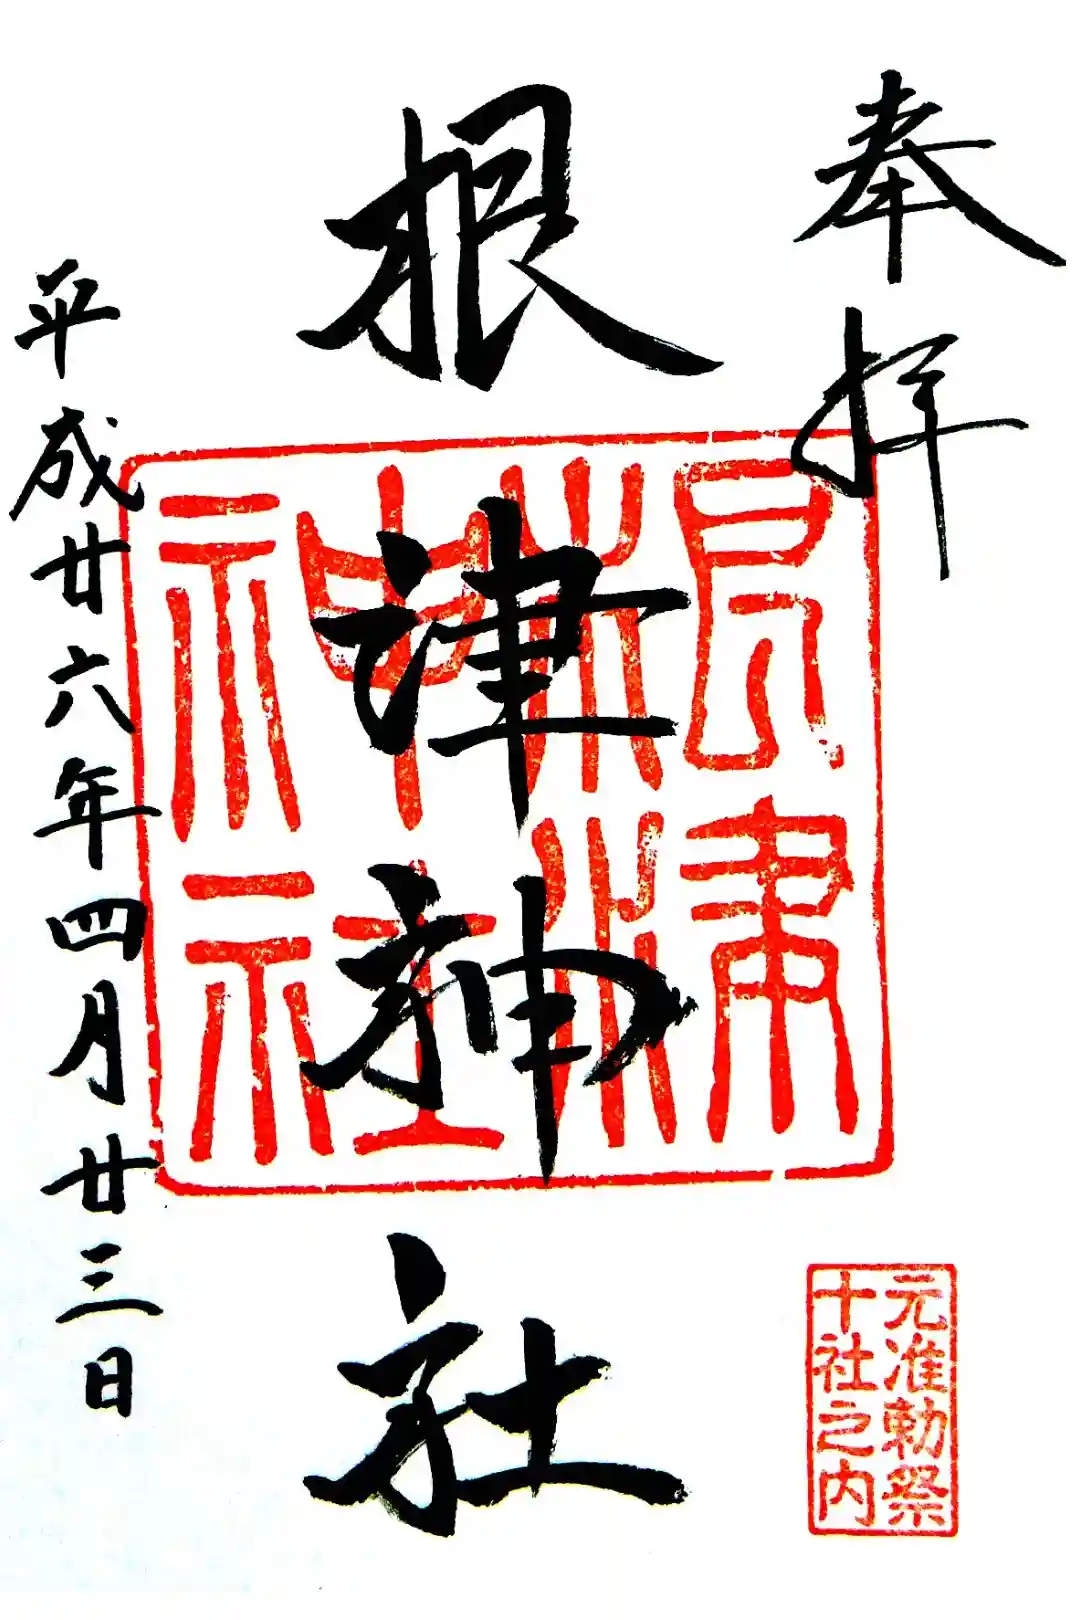 奉拝
根津神社
根津
神社
元准勅祭
十社之内
平成廿六年四月廿三日